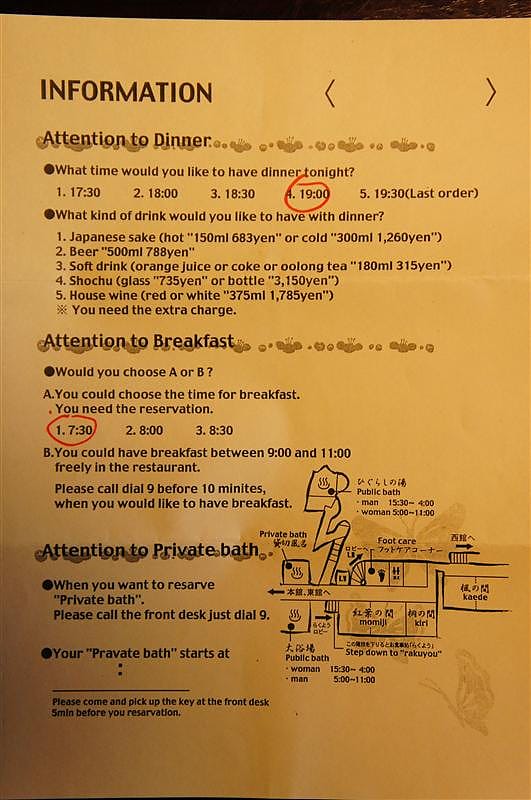 INFORMATION 〈 〉
Attention to Dinner
●What time would you like to have dinner tonight?
1. 17:30 2. 18:00 3. 18:30 4. 19:00 5. 19:30(Last order)
●What kind of drink would you like to have with dinner?
1. Japanese sake (hot "150ml 683yen" or cold "300ml 1,260yen")
2. Beer "500ml 788yen"
3. Soft drink (orange juice or coke or oolong tea "180ml 315yen")
4. Shochu (glass "735yen" or bottle "3,150yen")
5. House wine (red or white "375ml 1,785yen")
※ You need the extra charge.
Attention to Breakfast
●Would you choose A or B ?
A.You could choose the time for breakfast.
You need the reservation.
1. 7:30 2. 8:00 3. 8:30
B.You could have breakfast between 9:00 and 11:00
freely in the restaurant.
Please call dial 9 before 10 minites,
when you would like to have breakfast.
ひぐらしの湯
Public bath
・man 15:30~ 4:00
・woman 5:00~11:00
Attention to Private bath
●When you want to resarve
"Private bath".
Please call the front desk just dial 9.
●Your "Pravate bath" starts at
:
Please come and pick up the key at the front desk
5min before you resarvation.
Private bath
貸切風呂
Foot care
フットケアコーナー
西館へ
ロビーへ
本館、東館へ
楓の間
kaede
紅葉の間
momiji
桐の間
kiri
らくよう
ロビー
大浴場
Public bath
・woman 15:30~ 4:00
・man 5:00~11:00
この階段を下りるとお食事処「らくよう」
Step down to "rakuyou"